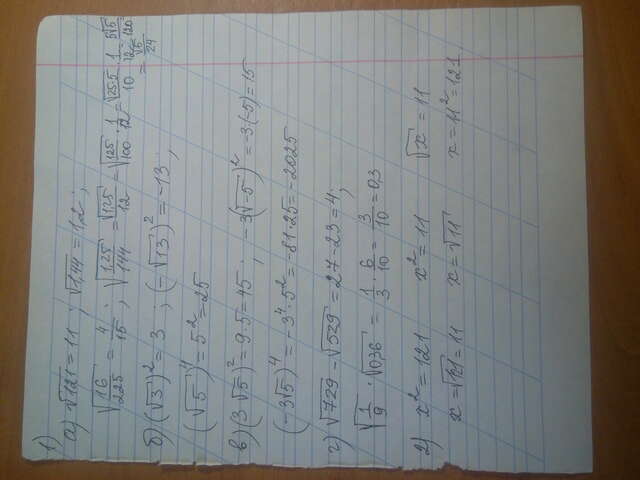 1)
а) √121 = 11 ; √1,44 = 1,2 ;
√(16/225) = 4/15 ; √(1,25/144) = √1,25/12 = √(125/100) · 1/12 = √(25·5)/10 · 1/12 = 5√5/120 = √5/24
б) (√3)² = 3 ; (-√13)² = -13 ;
(√5)⁴ = 5² = 25
в) (3√5)² = 9·5 = 45 ; -3(√-5)² = 3·(-5) = 15
(-3√5)⁴ = -3⁴·5² = -81·25 = -2025
г) √729 - √529 = 27 - 23 = 4 ;
√(1/9) · √0,36 = 1/3 · 6/10 = 3/10 = 0,3
2) x² = 121 x² = 11 √x = 11
x = √121 = 11 x = √11 x = 11² = 121